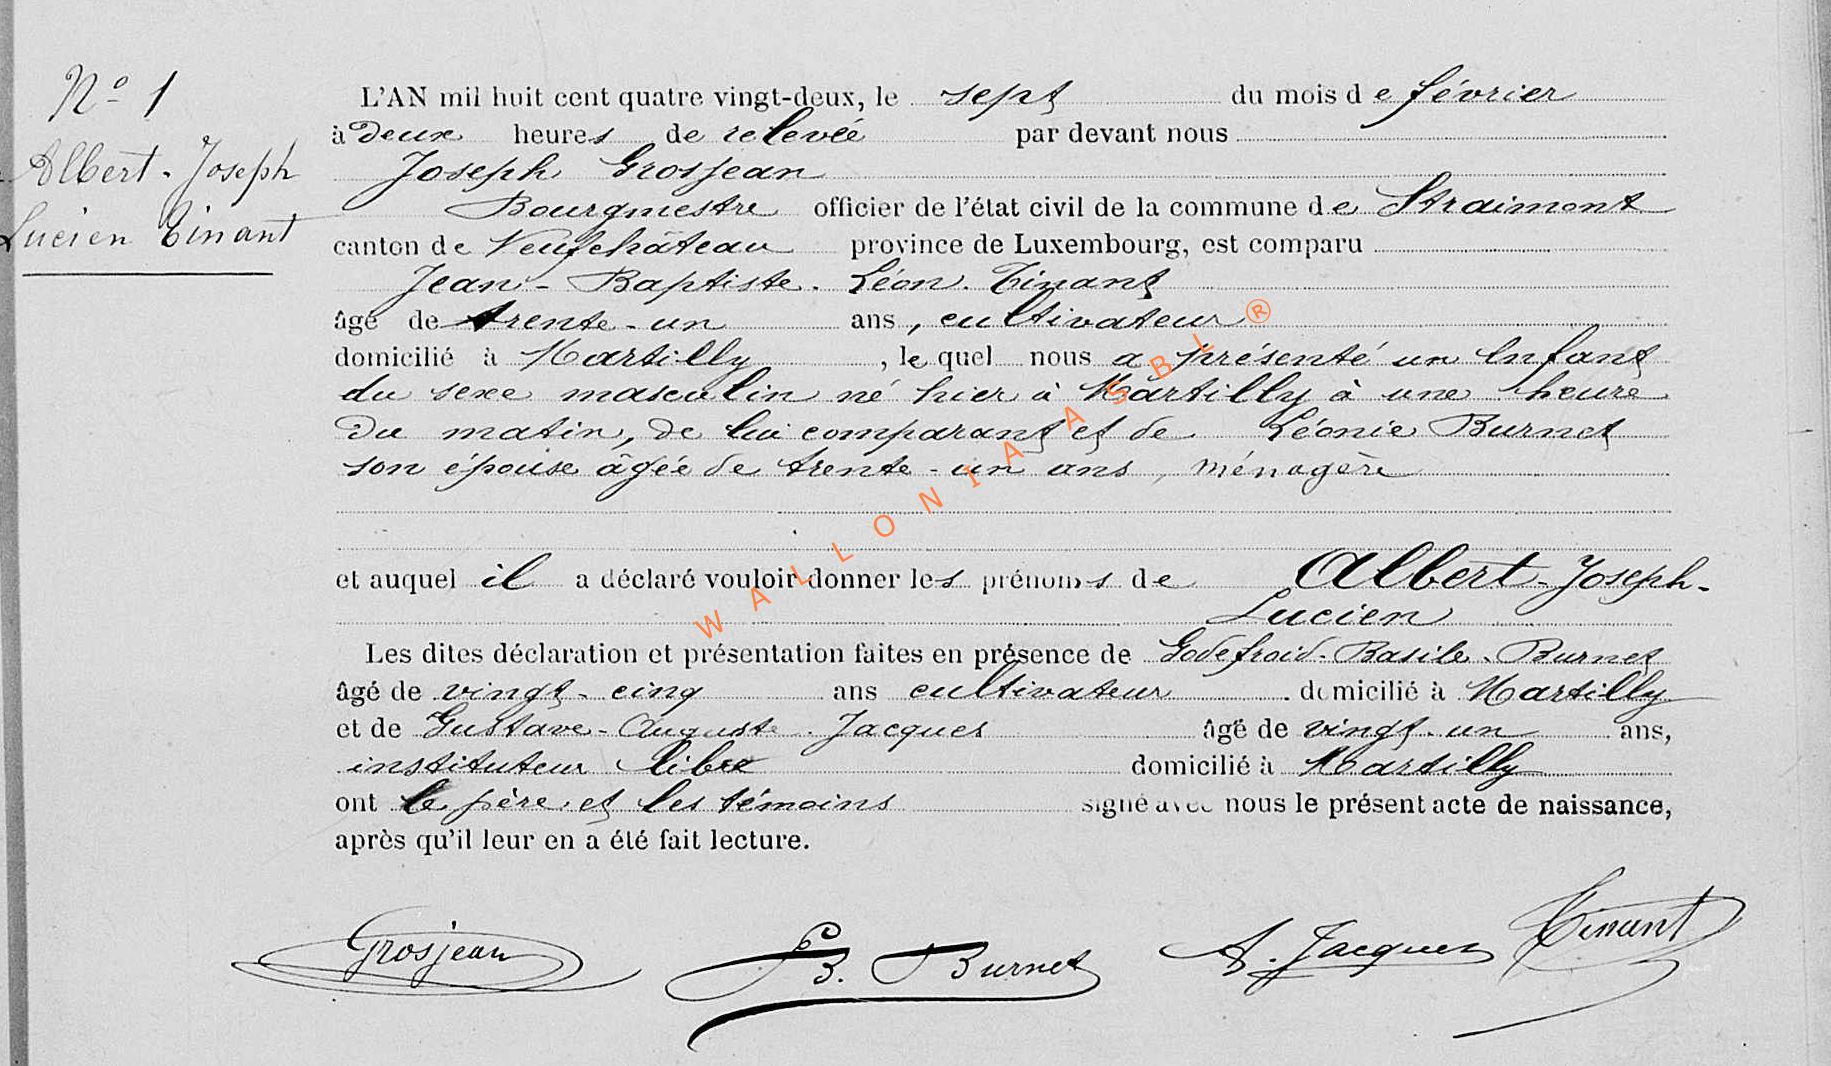 N° 1
Albert-Joseph
Lucien Tinant
L'AN mil huit cent quatre vingt-deux, le sept du mois de février
à Deux heures de relevée par devant nous
Joseph Grosjean
Bourgmestre officier de l'état civil de la commune de Straimont
canton de Neufchâteau province de Luxembourg, est comparu
Jean-Baptiste-Léon Tinant
âgé de trente-un ans, cultivateur
domicilié à Martilly, lequel nous a présenté un Enfant
du sexe masculin né hier à Martilly à une heure
Du matin, de lui comparant et de Léonie Burnet
son épouse âgée de trente-un ans, ménagère
et auquel il a déclaré vouloir donner les prénoms de Albert-Joseph-
Lucien
Les dites déclaration et présentation faites en présence de Godefroid-Basile-Burnet
âgé de vingt-cinq ans cultivateur domicilié à Martilly
et de Gustave-Auguste Jacques âgé de vingt-un ans,
instituteur libre domicilié à Martilly
ont le père et les témoins signé avec nous le présent acte de naissance,
après qu'il leur en a été fait lecture.
Grosjean B. Burnet A. Jacques Tinant
WALLONIA ASBL ®